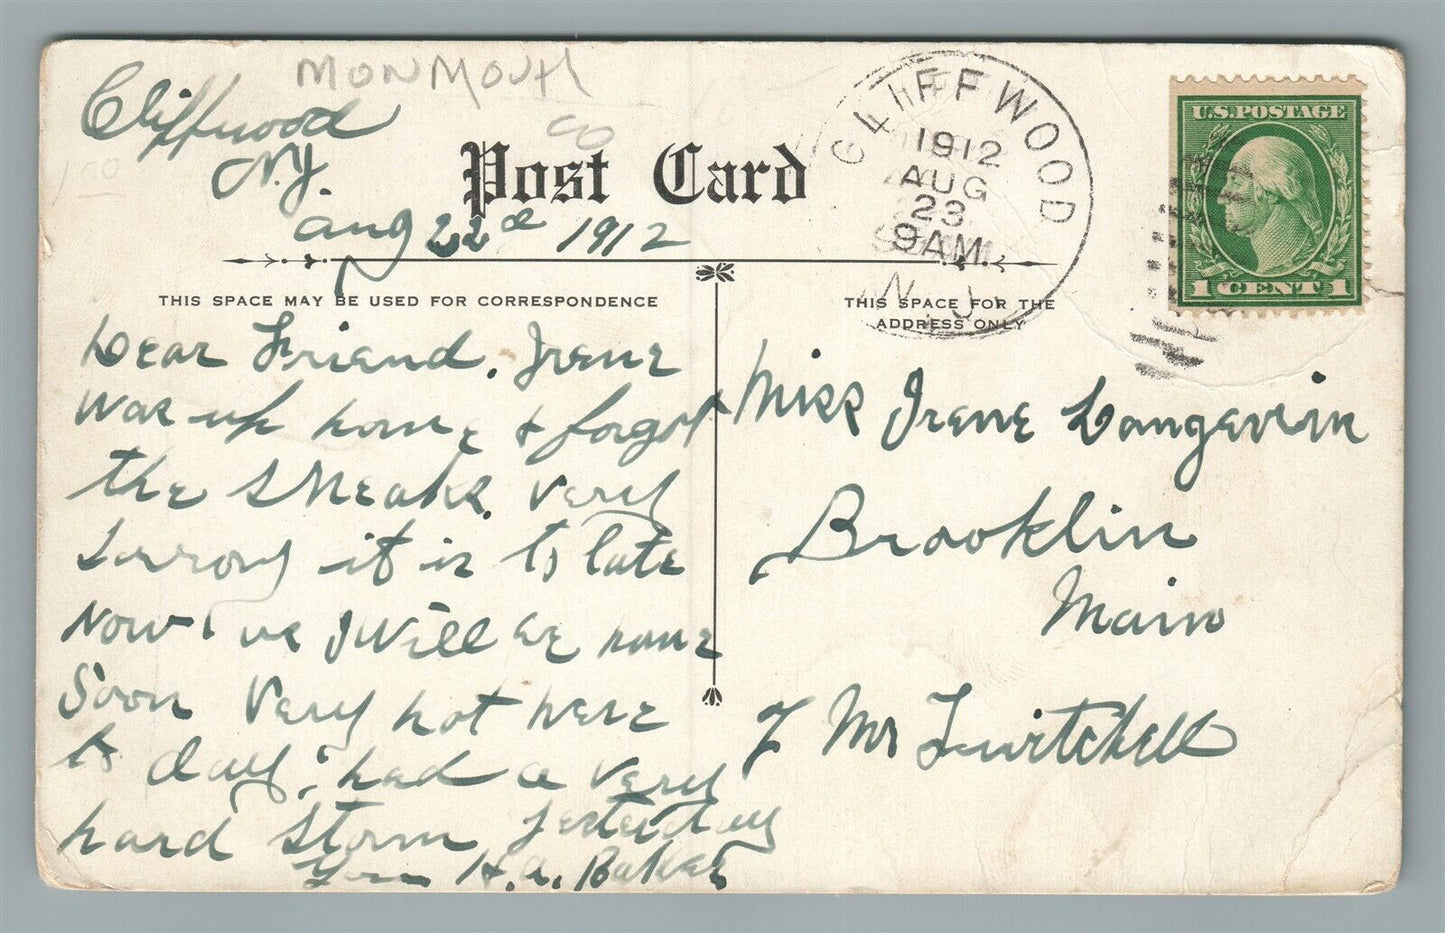 MONMOUTH
CO
150
Cliffwood
N.J.
Aug 22d 1912
Post Card
CLIFFWOOD
1912
AUG
23
9AM
N.J.
U.S. POSTAGE
1 CENT 1
THIS SPACE MAY BE USED FOR CORRESPONDENCE
THIS SPACE FOR THE
ADDRESS ONLY
Dear Friend. Irene
was up home & forgot
the sneaks. very
sorrory it is to late
Now we Will be home
Soon Very hot here
to day; had a very
hard storm yesterday
H.A. Baker
Miss Irene Longevin
Brooklin
Main
Mr Twitchell